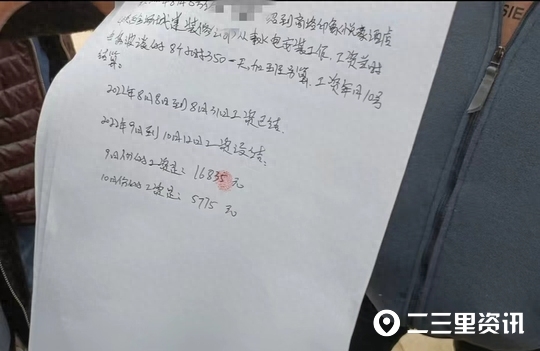 到商洛印象悦豪酒店
装修公司从事水电安装工作,工资当时
84小时350一天,加班另算,工资每月10号
结算。
2022年8月8日到8月31日工资已结.
2022年9月到10月12日工资没结:
9月份的工资是:16835元
10月份的工资是:5775元
SIE
二三里资讯